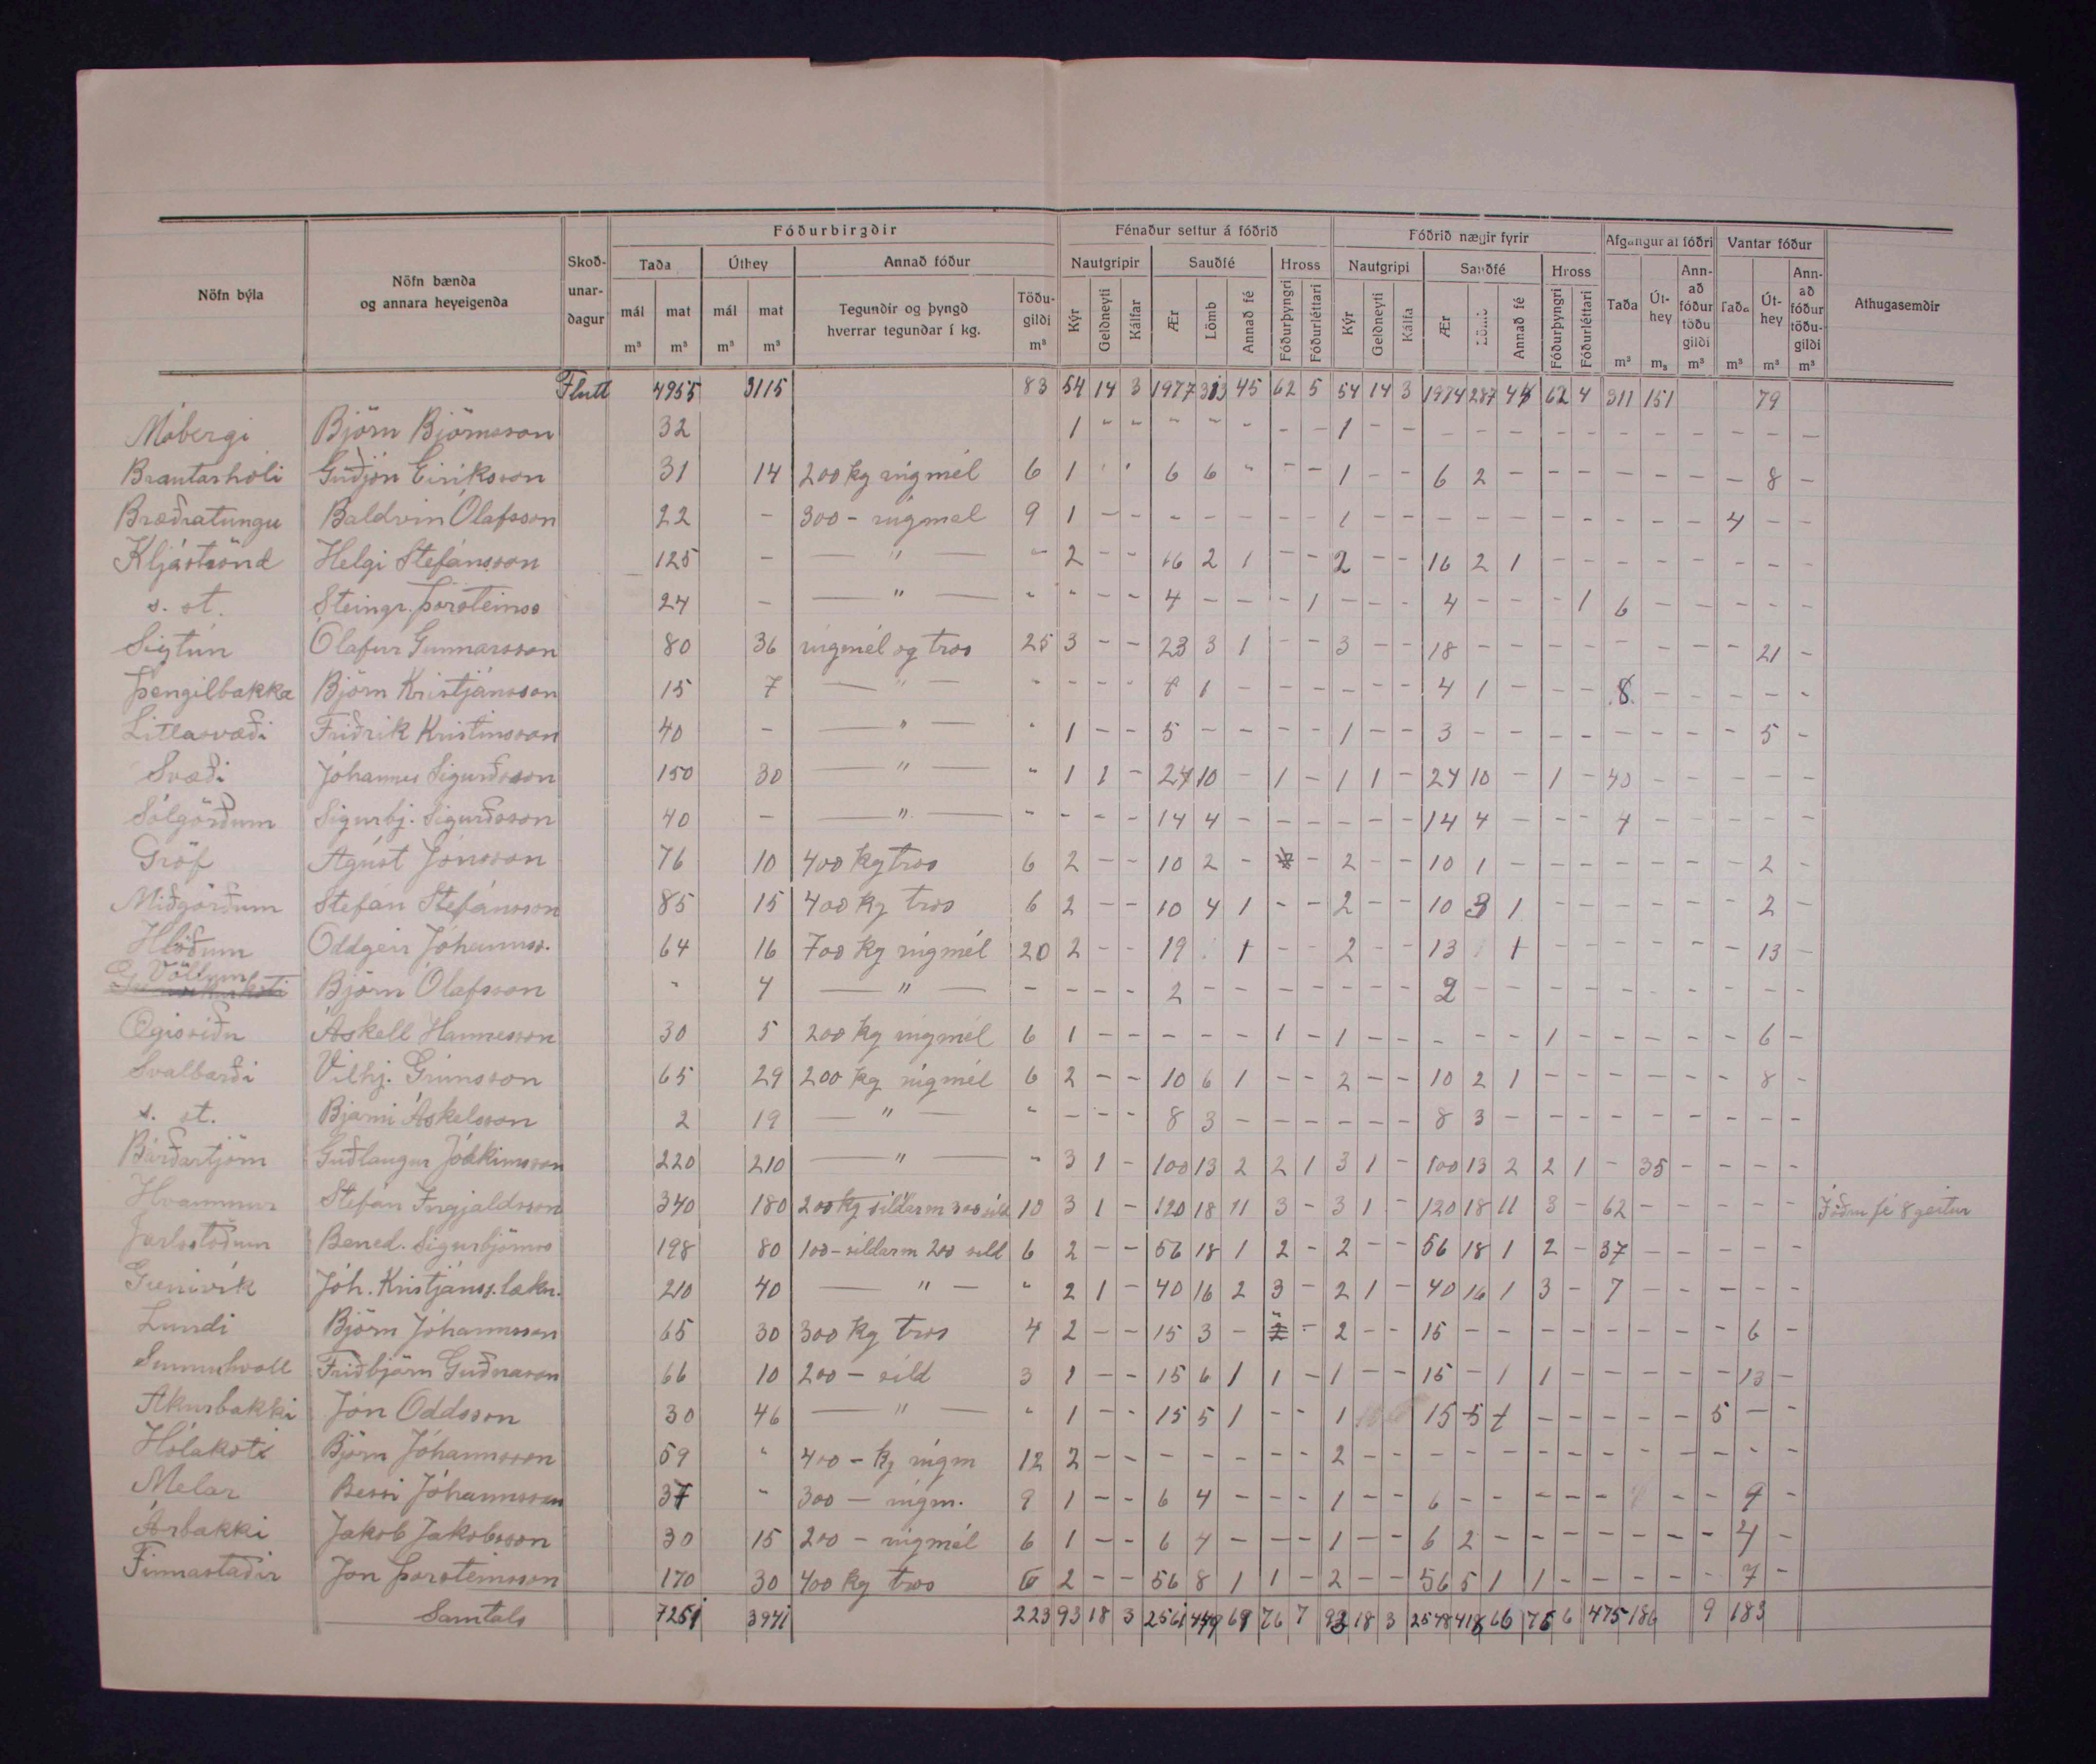 Nöfn býla | Nöfn bænda og annara heyeigenda | Skoðunardagur | Fóðurbirgðir | Fénaður settur á fóðrið | Fóðrið nægir fyrir | Afgangur af fóðri | Vantar fóður | Athugasemdir
Taða | Úthey | Annað fóður | Nautgripir | Sauðfé | Hross | Nautgripi | Sauðfé | Hross | Taða | Úthey | Annað fóður töðugildi | Taða | Úthey | Annað fóður töðugildi
mál m³ | mat m³ | mál m³ | mat m³ | Tegundir og þyngd hverrar tegundar í kg. | Töðugildi m³ | Kýr | Geldneyti | Kálfar | Ær | Lömb | Annað fé | Fóðurþyngri | Fóðurléttari | Kýr | Geldneyti | Kálfa | Ær | Lömb | Annað fé | Fóðurþyngri | Fóðurléttari | m³ | m₃ | m³ | m³ | m³ | m³
Flutt 4955 3115 83 54 14 3 1977 313 45 62 5 54 14 3 1974 287 44 62 4 311 151 79
Móbergi Björn Björnsson 32 1 " " - - - - - 1 - - - - - - - - - - - - -
Brautarhóli Guðjón Eiríksson 31 14 200 kg rúgmél 6 1 " " 6 6 " - - 1 - - 6 2 - - - - - - - 8 -
Bræðratungu Baldvin Ólafsson 22 - 300 - rúgmél 9 1 - - - - - - - 1 - - - - - - - - - - 4 - -
Kljáströnd Helgi Stefánsson 125 - — " — " 2 - - 16 2 1 - - 2 - - 16 2 1 - - - - - - - -
s. st. Steingr. Þorsteinss 24 - — " — " " - - 4 - - - 1 - - - 4 - - - 1 6 - - - - -
Sigtún Ólafur Gunnarsson 80 36 rúgmél og tros 25 3 - - 23 3 1 - - 3 - - 18 - - - - - - - - 21 -
Þengilbakka Björn Kristjánsson 15 7 — " — - - - - 1 - - - - - - - 4 1 - - - 8 - - - - -
Litlasvæði Friðrik Kristinsson 40 - — " — " 1 - - 5 - - - - 1 - - 3 - - - - - - - - 5 -
Svæði Jóhannes Sigurðsson 150 30 — " — " 1 1 - 24 10 - 1 - 1 1 - 24 10 - 1 - 40 - - - - -
Sólgörðum Sigurbj. Sigurðsson 40 - — " — - - - - 14 4 - - - - - - 14 4 - - - 4 - - - - -
Gröf Ágúst Jónsson 76 10 400 kg tros 6 2 - - 10 2 - - 2 - - 10 1 - - - - - - - 2 -
Miðgörðum Stefán Stefánsson 85 15 400 kg tros 6 2 - - 10 4 1 - - 2 - - 10 3 1 - - - - - - 2 -
Hlöðum Oddgeir Jóhannss. 64 16 700 kg rúgmél 20 2 - - 19 1 - - 2 - - 13 1 - - - - - - 13 -
Völlum Björn Ólafsson - 4 — " — - - - - 2 - - - - - - - 2 - - - - - - - - - -
Ægissíðu Áskell Hannesson 30 5 200 kg rúgmél 6 1 - - - - - 1 - 1 - - - - - 1 - - - - - 6 -
Svalbarði Vilhj. Grímsson 65 29 200 kg rúgmél 6 2 - - 10 6 1 - - 2 - - 10 2 1 - - - - - - 8 -
s. st. Bjarni Áskelsson 2 19 — " — " - - - 8 3 - - - - - - 8 3 - - - - - - - - -
Bárðartjörn Guðlaugur Jóakimsson 220 210 — " — " 3 1 - 100 13 2 2 1 3 1 - 100 13 2 2 1 - 35 - - - -
Hvammur Stefán Ingjaldsson 340 180 200 kg síldarm 300 síld 10 3 1 - 120 18 11 3 - 3 1 - 120 18 11 3 - 62 - - - - - Í öðru fé 8 geitur
Jarlsstöðum Bened. Sigurbjörnss 198 80 100 - síldarm 200 síld 6 2 - - 56 18 1 2 - 2 - - 56 18 1 2 - 37 - - - - -
Grenivík Jóh. Kristjánss. lækn. 210 40 — " — " 2 1 - 40 16 2 3 - 2 1 - 40 16 1 3 - 7 - - - - -
Lundi Björn Jóhannsson 65 30 300 kg tros 4 2 - - 15 3 - 2 - 2 - - 15 - - - - - - - - 6 -
Sunnuhvoll Friðbjörn Guðnason 66 10 200 - síld 3 1 - - 15 6 1 1 - 1 - - 15 - 1 1 - - - - - 13 -
Akurbakki Jón Oddsson 30 46 — " — " 1 - - 15 5 1 - - 1 15 5 1 - - - - - 5 - -
Hólakoti Björn Jóhannsson 59 " 400 - kg rúgm 12 2 - - - - - - - 2 - - - - - - - - - - - - -
Melar Bessi Jóhannsson 37 " 300 - rúgm. 9 1 - - 6 4 - - - 1 - - 6 - - - - - - - 9 -
Árbakki Jakob Jakobsson 30 15 200 - rúgmél 6 1 - - 6 4 - - - 1 - - 6 2 - - - - - - - 4 -
Finnastaðir Jón Þorsteinsson 170 30 400 kg tros 6 2 - - 56 8 1 1 - 2 - - 56 5 1 1 - - - - - 7 -
Samtals 7251 3941 223 93 18 3 2561 449 69 76 7 93 18 3 2548 418 66 76 6 475 186 9 183